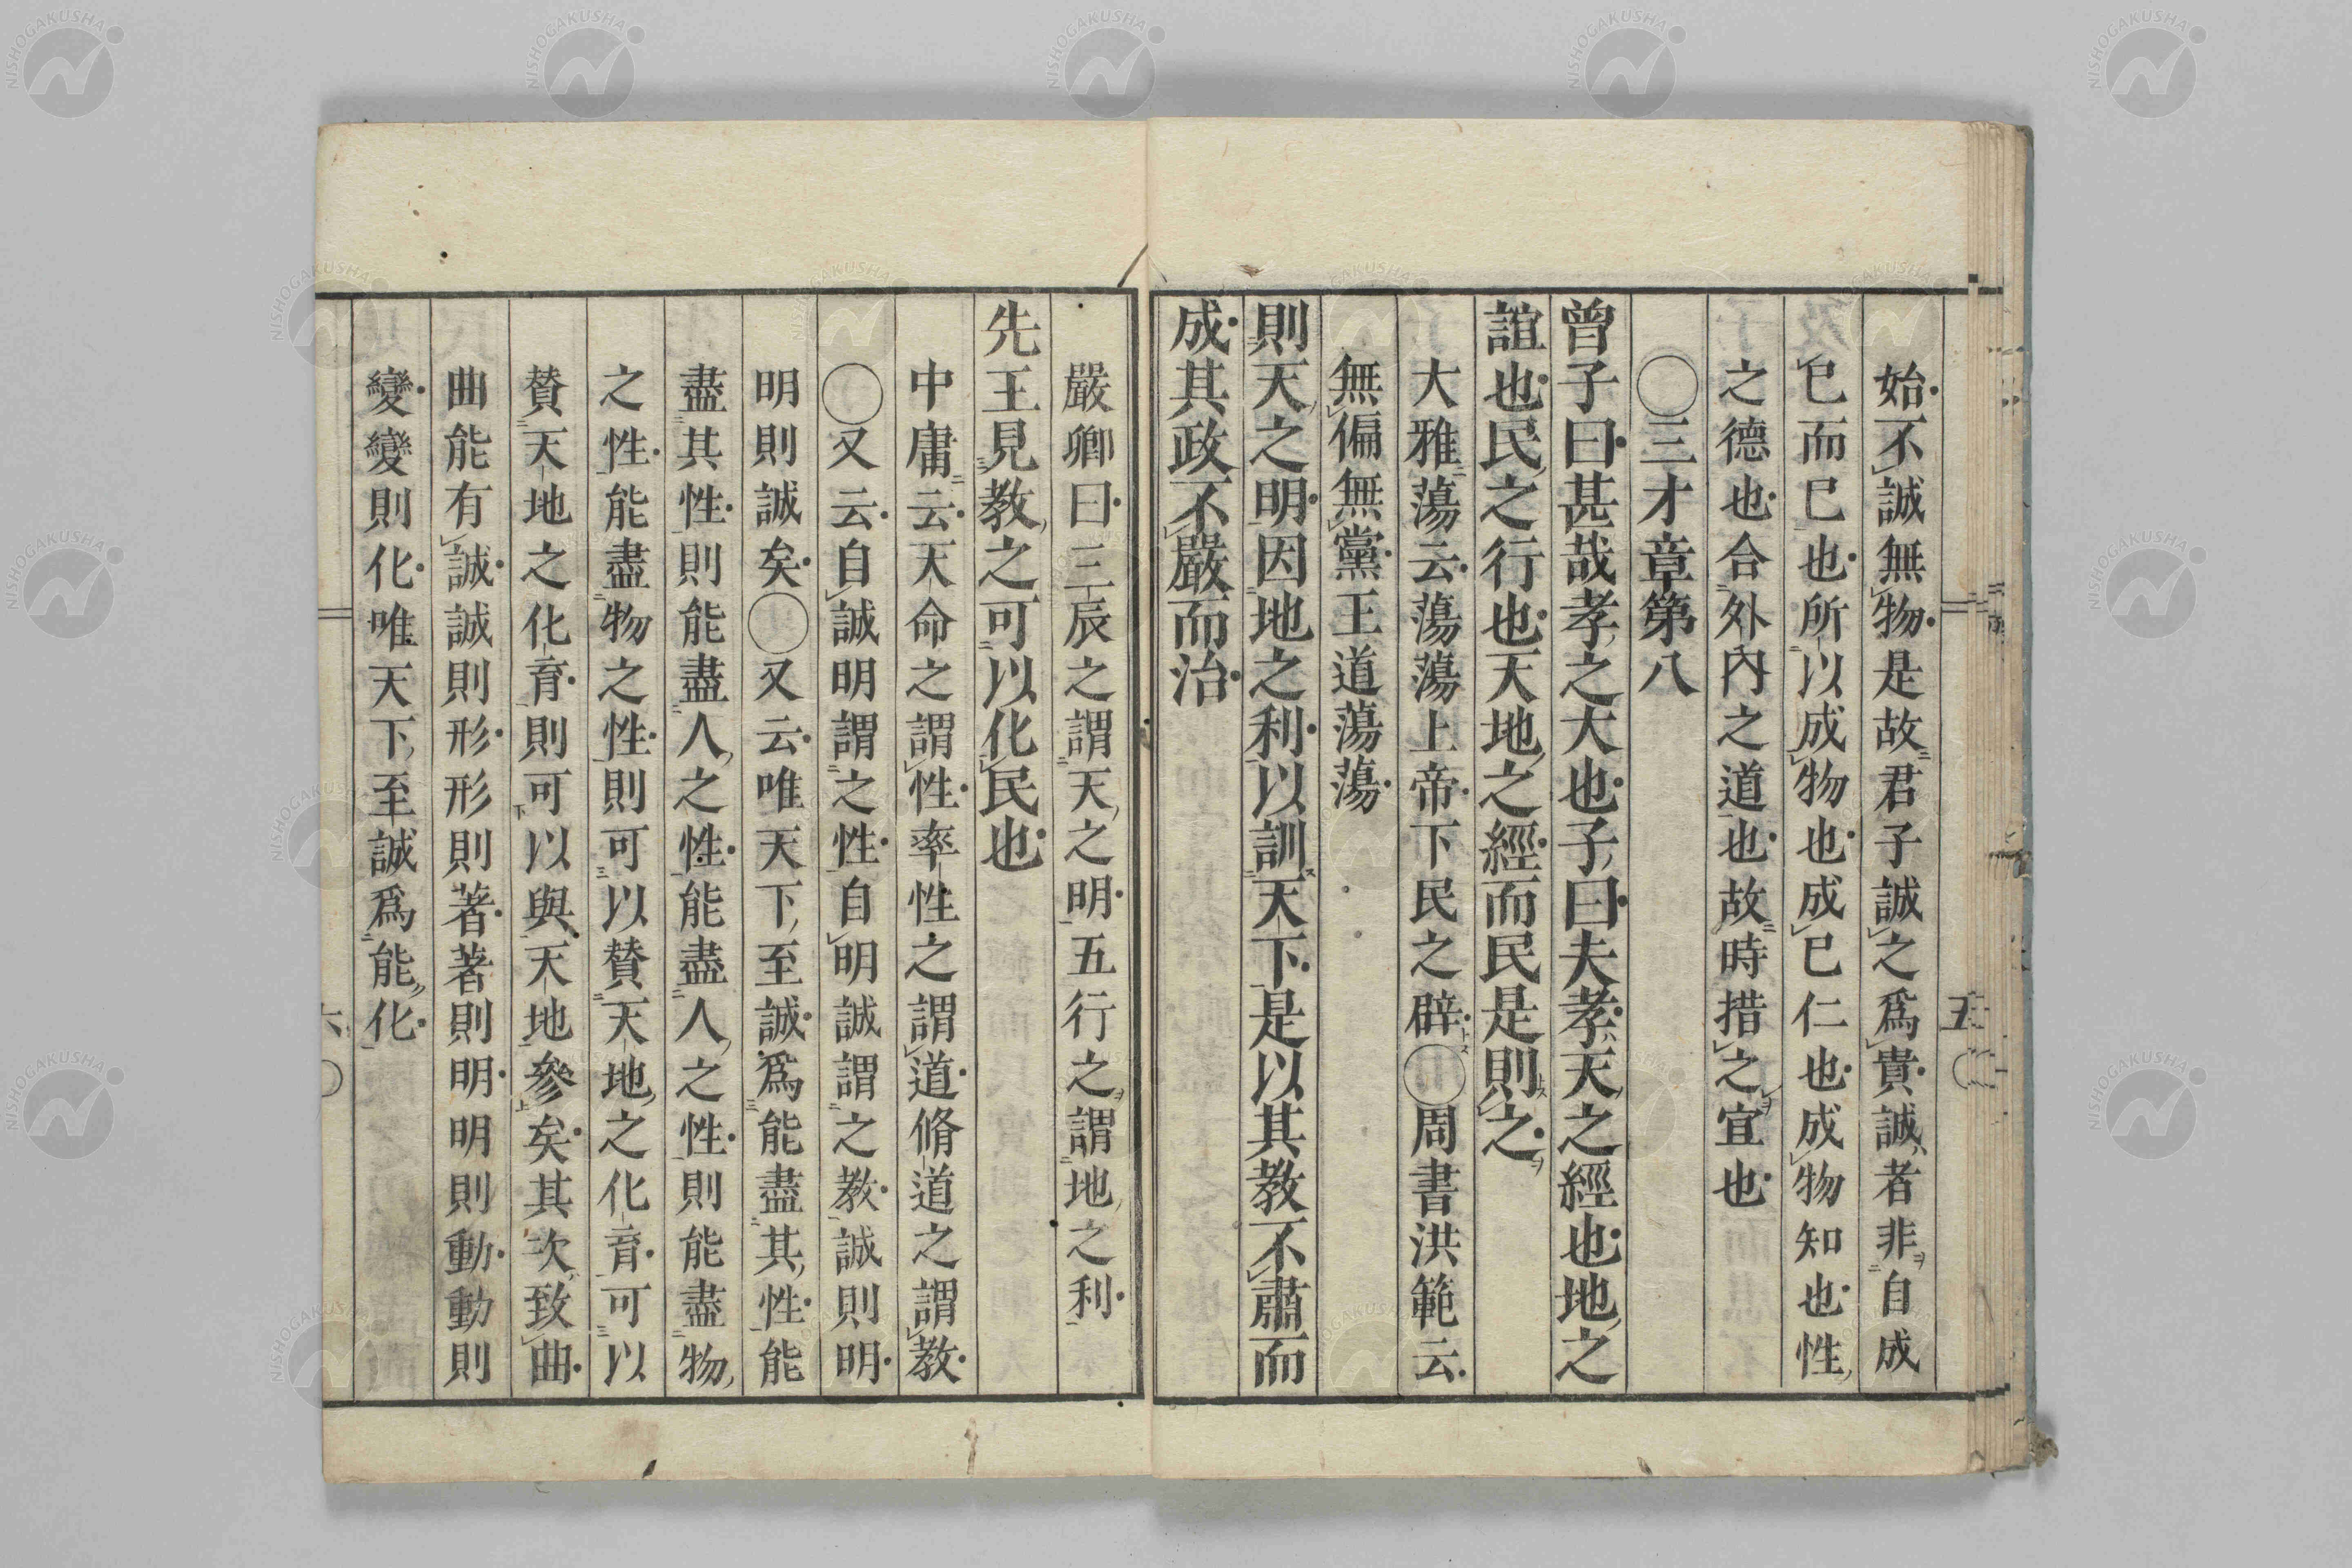 始不誠無物是故君子誠之爲貴誠者非自成
己而已也所以成物也成己仁也成物知也性
之德也合外內之道也故時措之宜也
◯三才章第八
曾子曰甚哉孝之大也子曰夫孝天之經也地之
誼也民之行也天地之經而民是則之
大雅蕩云蕩蕩上帝下民之辟◯周書洪範云
無偏無黨王道蕩蕩
則天之明因地之利以訓天下是以其教不肅而
成其政不嚴而治
嚴卿曰三辰之謂天之明五行之謂地之利
先王見教之可以化民也
中庸云天命之謂性率性之謂道脩道之謂教
◯又云自誠明謂之性自明誠謂之教誠則明
明則誠矣◯又云唯天下至誠爲能盡其性能
盡其性則能盡人之性能盡人之性則能盡物
之性能盡物之性則可以贊天地之化育可以
贊天地之化育則可以與天地參矣其次致曲
曲能有誠誠則形形則著著則明明則動動則
變變則化唯天下至誠爲能化
五
六
NISHOGAKUSHA